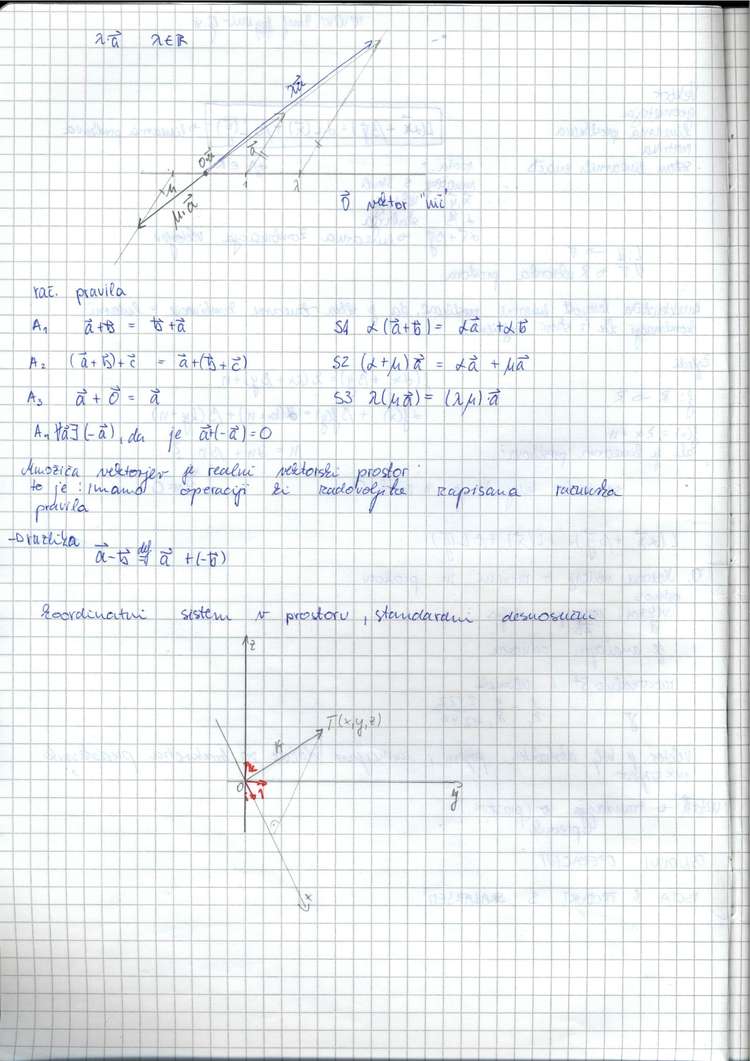 λ·a⃗ λ∈ℝ
λa⃗
a⃗
μ
1 λ
μ·a⃗
0⃗ vektor "nič"
rač. pravila
A₁ a⃗+b⃗ = b⃗+a⃗ S1 α(a⃗+b⃗) = αa⃗ + αb⃗
A₂ (a⃗+b⃗)+c⃗ = a⃗+(b⃗+c⃗) S2 (α+μ)a⃗ = αa⃗ + μa⃗
A₃ a⃗ + 0⃗ = a⃗ S3 λ(μa⃗) = (λμ)·a⃗
A₄ ∀a⃗∃(-a⃗), da je a⃗+(-a⃗)=0
Množica vektorjev je realni vektorski prostor
to je: imamo operaciji ki zadovoljita zapisana računska
pravila
-Drazlika
a⃗-b⃗ def= a⃗ +(-b⃗)
koordinatni sistem v prostoru, standardni desnosučni
z
T(x,y,z)
k
0
y
x